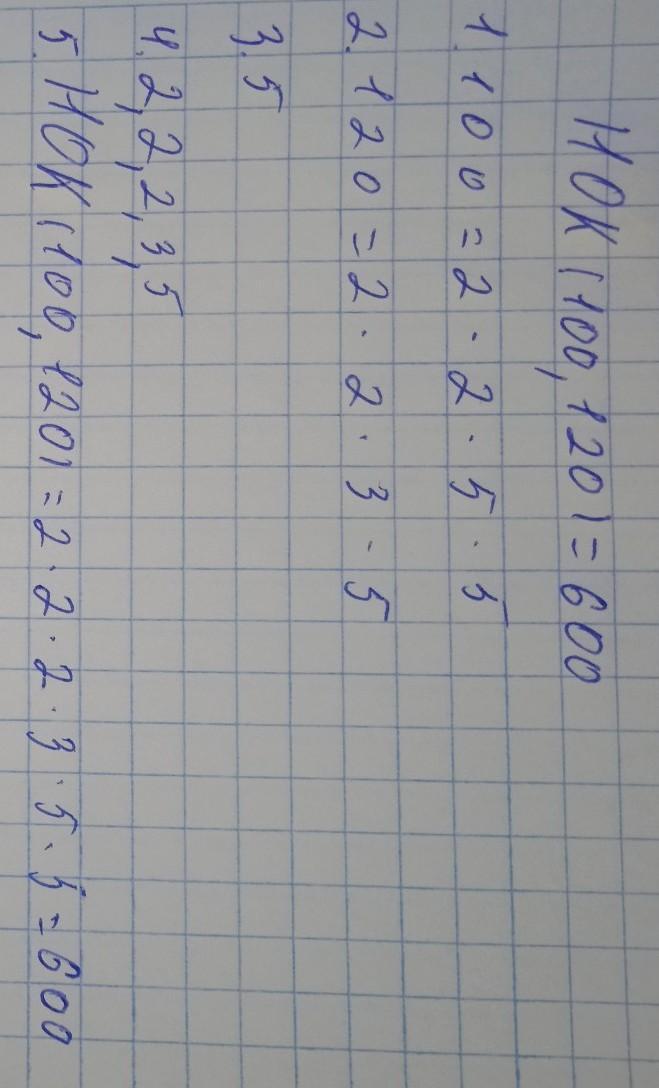 НОК (100, 120) = 600
1. 100 = 2 · 2 · 5 · 5
2. 120 = 2 · 2 · 3 · 5
3. 5
4. 2, 2, 2, 3, 5
5. НОК (100, 120) = 2 · 2 · 2 · 3 · 5 · 5 = 600